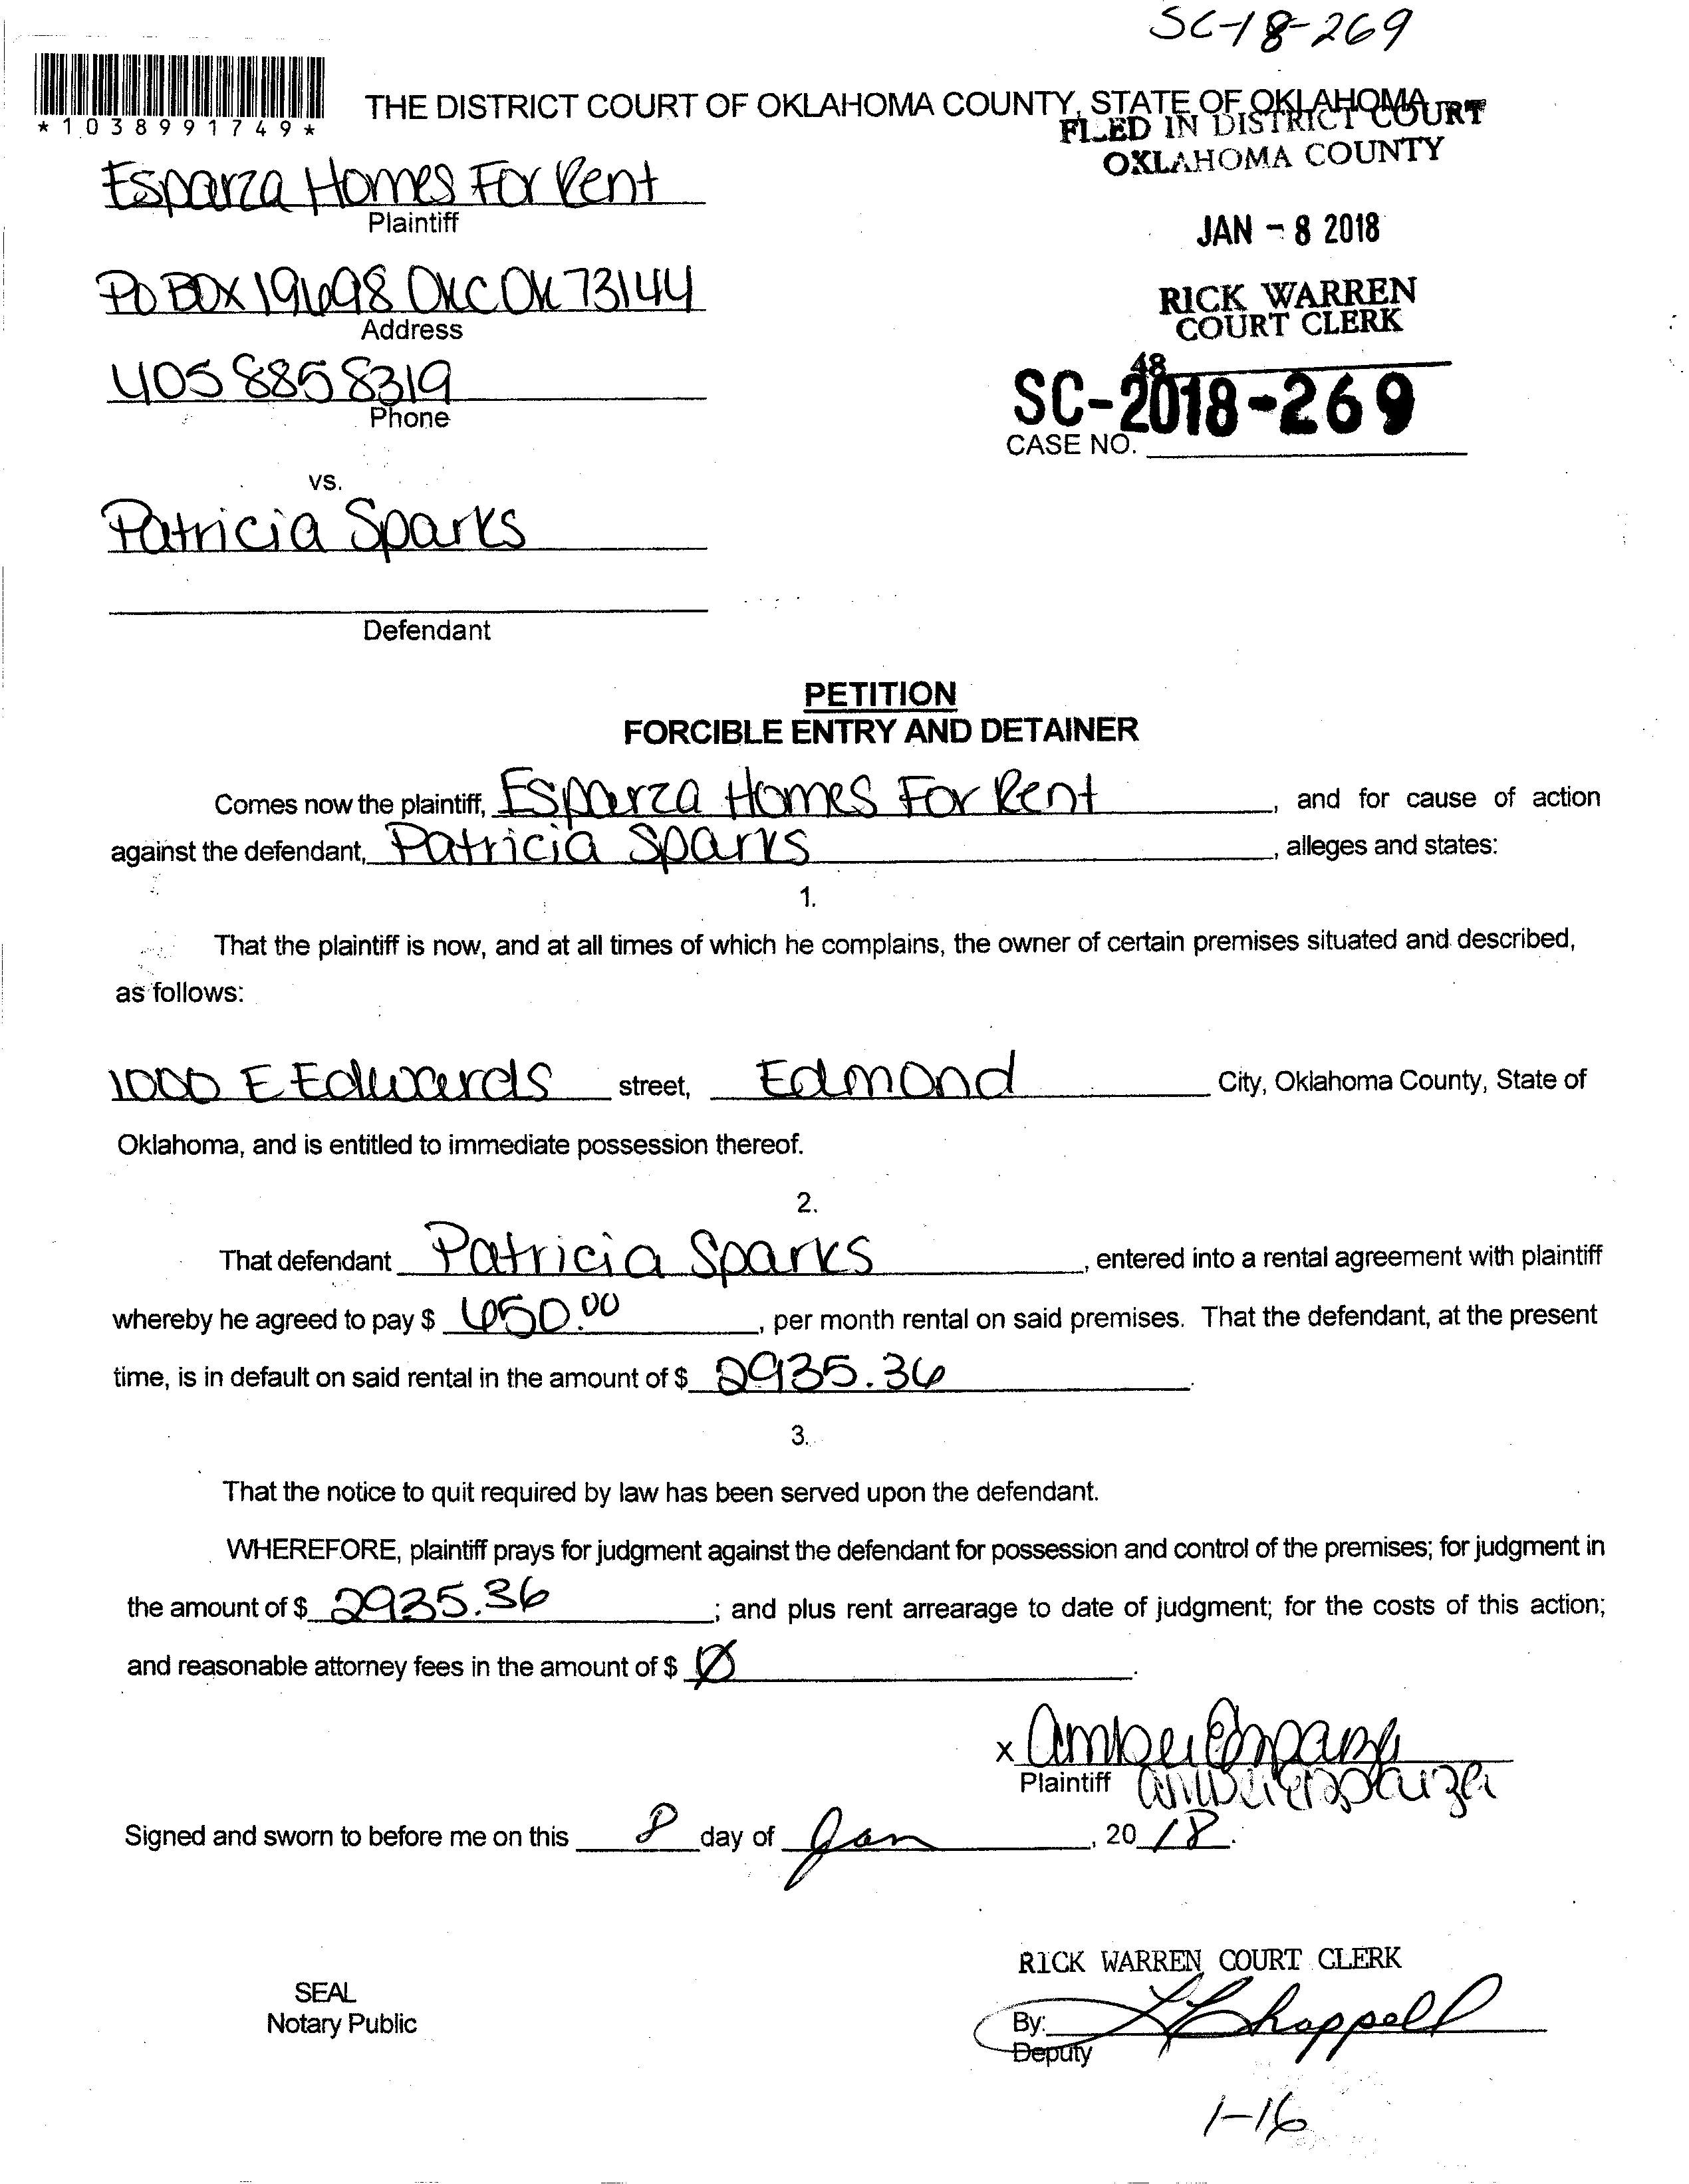 SC-18-269
*1038991749*
THE DISTRICT COURT OF OKLAHOMA COUNTY, STATE OF OKLAHOMA
FILED IN DISTRICT COURT
OKLAHOMA COUNTY
Esparza Homes For Rent
Plaintiff
JAN - 8 2018
PO BOX 19698 OKC OK 73144
Address
RICK WARREN
COURT CLERK
405 885 8319
Phone
48
SC-2018-269
CASE NO.
vs.
Patricia Sparks
Defendant
PETITION
FORCIBLE ENTRY AND DETAINER
Comes now the plaintiff, Esparza Homes For Rent, and for cause of action
against the defendant, Patricia Sparks, alleges and states:
1.
That the plaintiff is now, and at all times of which he complains, the owner of certain premises situated and described,
as follows:
1000 E Edwards street, Edmond City, Oklahoma County, State of
Oklahoma, and is entitled to immediate possession thereof.
2.
That defendant Patricia Sparks, entered into a rental agreement with plaintiff
whereby he agreed to pay $ 650.00, per month rental on said premises. That the defendant, at the present
time, is in default on said rental in the amount of $ 2935.36.
3.
That the notice to quit required by law has been served upon the defendant.
WHEREFORE, plaintiff prays for judgment against the defendant for possession and control of the premises; for judgment in
the amount of $ 2935.36; and plus rent arrearage to date of judgment; for the costs of this action;
and reasonable attorney fees in the amount of $ Ø.
x Amber Esparza
Plaintiff Amber Esparza
Signed and sworn to before me on this 8 day of Jan, 2018.
RICK WARREN COURT CLERK
SEAL
Notary Public
By: Chappell
Deputy
1-16